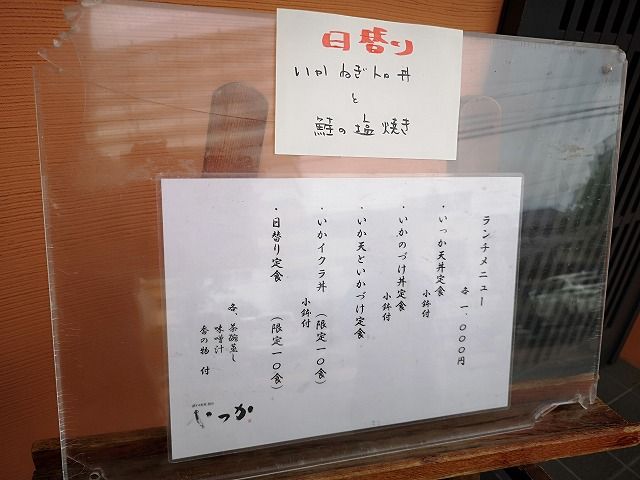 日替り
いか ねぎトロ丼
と
鮭の塩焼き
ランチメニュー
各 一、〇〇〇円
・いっか天丼定食
小鉢付
・いかのづけ丼定食
小鉢付
・いか天といかづけ定食
・いかイクラ丼 (限定一〇食)
小鉢付
・日替り定食 (限定一〇食)
各、茶碗蒸し
味噌汁
香の物 付
いっか